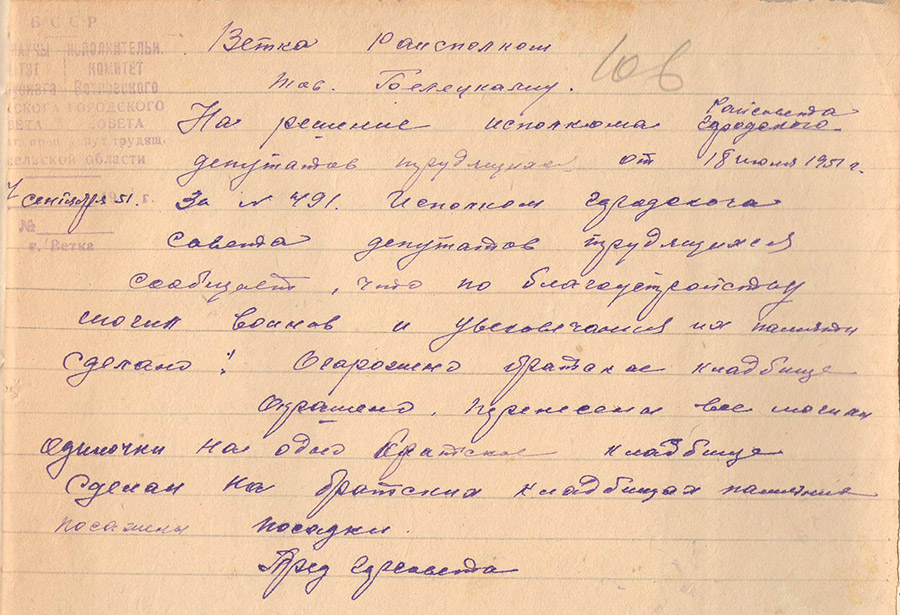 БССР
ИСПОЛНИТЕЛЬН.
КОМИТЕТ
Ветковского
ГОРОДСКОГО
СОВЕТА
деп. трудящ.
области
7 сентября 51. г.
№
г. Ветка
Ветка Раисполком
тов. Гбелецкаму.
10 в
На решение исполкома Райсовета городского
депутатов трудящихся от 18 июля 1951 г.
За № 491. Исполком городского
совета депутатов трудящихся
сообщает, что по благоустройству
могил воинов и увековечания их памяти
сделано: Огорожено братское кладбище
окрашено. Перенесены все могилы
одиночки на одно братское кладбище
сделан на братских кладбищах памятник
посажены посадки.
Пред горсовета